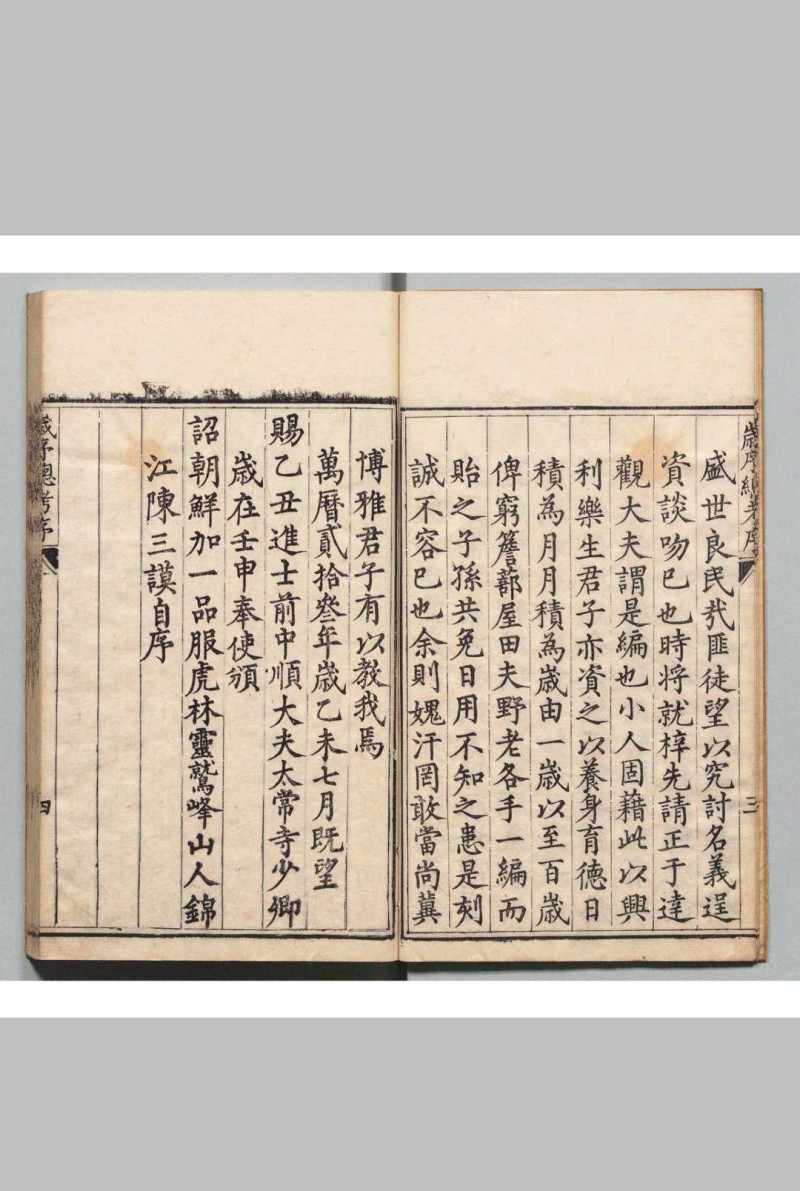 歲序總考序
三
盛世良民㢤匪徒望以究討名義逞
資談吻已也時将就梓先請正于達
觀大夫謂是編也小人固藉此以興
利樂生君子亦資之以養身育德日
積為月月積為歲由一歲以至百歲
俾窮簷蔀屋田夫野老各手一編而
貽之子孫共免日用不知之患是刻
誠不容已也余則媿汗罔敢當尚冀
博雅君子有以教我焉
萬曆貳拾叄年歲乙未七月既望
賜乙丑進士前中順大夫太常寺少卿
歲在壬申奉使頒
詔朝鮮加一品服虎林靈鷲峰山人錦
江陳三謨自序
歲序總考序
四